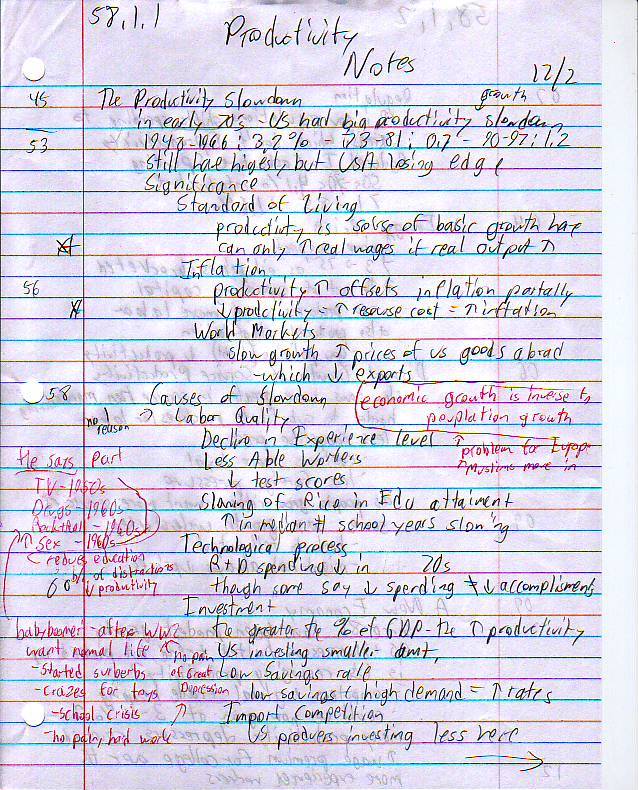 58.1.1
Productivity
Notes
12/2
45 The Productivity Slowdown growth
in early 70s - US had big productivity slowdown
53 1948-1966: 3.2% - 73-81: 0.7 - 90-97: 1.2
Still have higest, but USA losing edge
Significance
Standard of Living
productivity is sourse of basic growth
can only ↑ real wages if real output ↑
Inflation
56 productivity ↑ offsets inflation partially
↓ prodctivity - ↑ resourse cost = ↑ inflation
World Markets
slow growth ↑ prices of us goods abrad
- which ↓ exports
58 Causes of Slowdown
economic growth is inverse to
peuplation growth
no 1 reason → Labor Quality
Decline in Experience level
↑ problem for Europe
Muslims move in
He says Part Less Able Workers
TV-1950s ↓ test scores
Drugs-1960s Slowing of Rise in Edu attaiment
Rock & Roll - 1960s ↑ in median # school years slowing
↑ Sex - 1960s Technological process
reduve education R+D spending ↓ in 20s
60s of distractions
↓ productivity though some say ↓ spending ≠ ↓ accomplisments
Investment
babyboomer - after WW2 the greater the % of GDP - the ↑ productivity
want normal life ↖ no pain US investing smaller amt.
- started surberbs of Great Low Savings rate
- crazes for toys Depression low savings + high demand = ↑ rates
- school crisis ↗ Import Competition
- no pain, hard work US produers investing less here
→